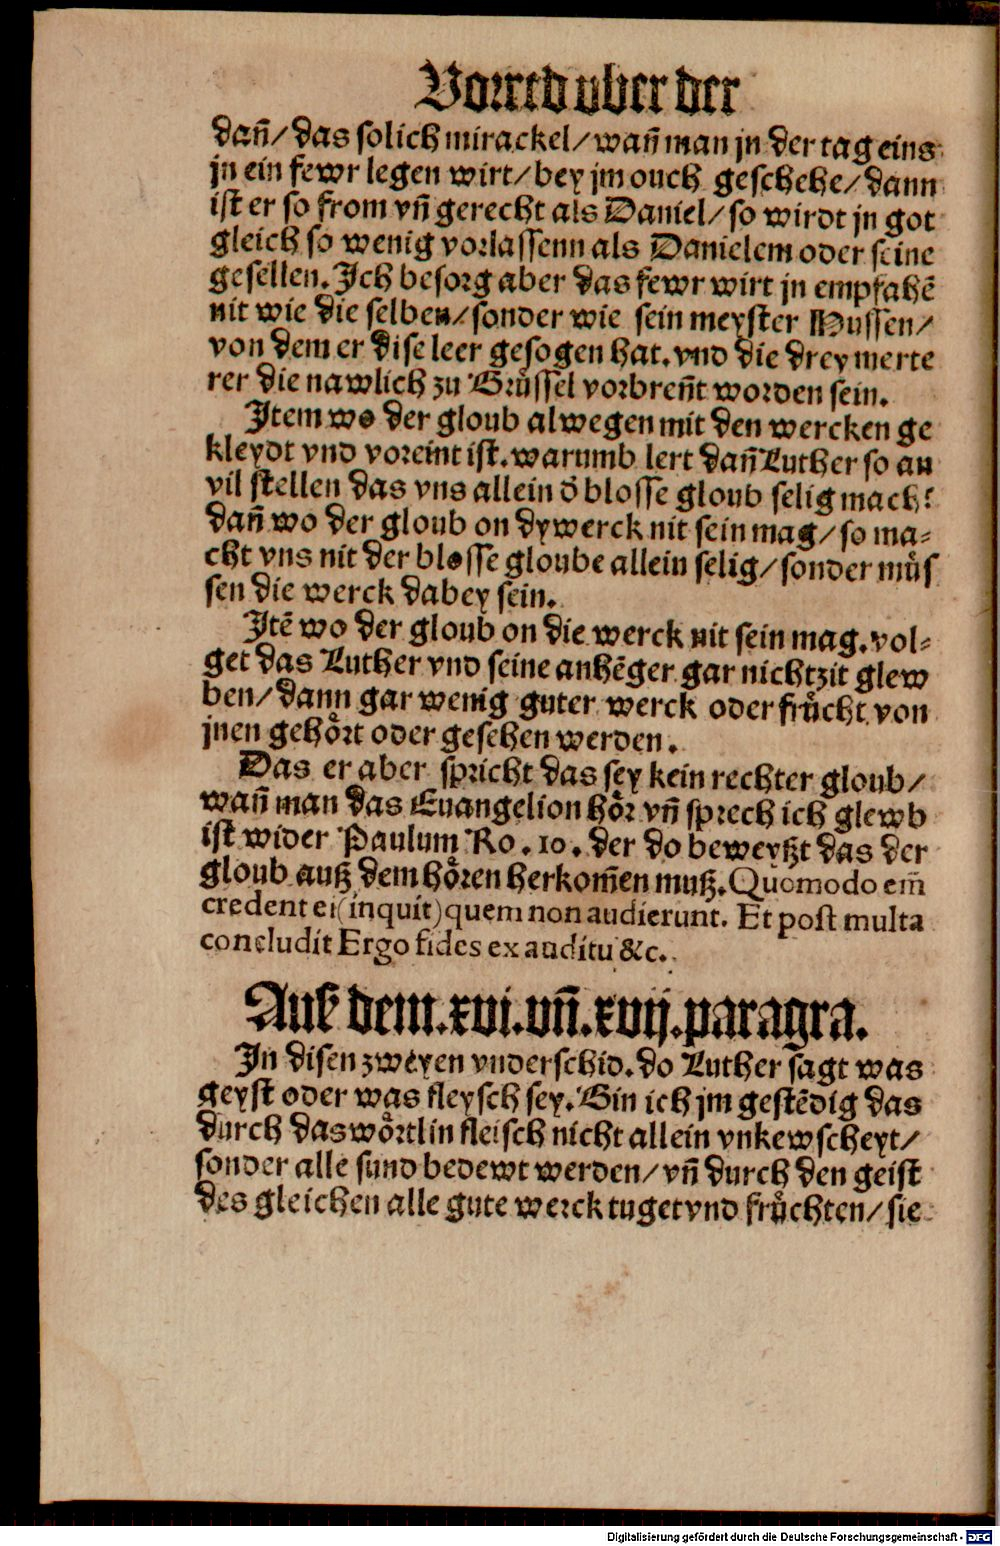 Vorred vber der
dañ/ das solich mirackel/ wañ man jn der tag eins
jn ein fewr legen wirt/ bey jm ouch geschehe/ dann
ist er so from vñ gerecht als Daniel/ so wirdt jn got
gleich so wenig vorlassenn als Danielem oder seine
gesellen. Ich besorg aber das fewr wirt jn empfahē
nit wie die selben/ sonder wie sein meyster Hussen/
von dem er dise leer gesogen hat. vnd die drey merte
rer die nawlich zu Brüssel vorbreñt worden sein.
Item wo der gloub alwegen mit den wercken ge
kleydt vnd voreint ist. warumb lert dañ Luther so an
vil stellen das vns allein d̄ blosse gloub selig mach?
dañ wo der gloub on dy werck nit sein mag/ so ma⸗
cht vns nit der blosse gloube allein selig/ sonder müs
sen die werck dabey sein.
Itē wo der gloub on die werck nit sein mag. vol⸗
get das Luther vnd seine anhēger gar nichtzit glew
ben/ dann gar wenig guter werck oder frücht von
jnen gehört oder gesehen werden.
Das er aber spricht das sey kein rechter gloub/
wañ man das Euangelion hör vñ sprech ich glewb
ist wider Paulum Ro. 10. der do beweyßt das der
gloub auß dem hören herkom̄en muß. Quomodo em̄
credent ei (inquit) quem non audierunt. Et post multa
concludit Ergo fides ex auditu &c.
Auß dem .xvi. vñ .xvij. paragra.
In disen zweyen vnderschid. do Luther sagt was
geyst oder was fleysch sey. Bin ich jm gestēdig das
durch das wörtlin fleisch nicht allein vnkewscheyt/
sonder alle sund bedewt werden/ vñ durch den geist
des gleichen alle gute werck tuget vnd früchten/ sie
Digitalisierung gefördert durch die Deutsche Forschungsgemeinschaft - DFG